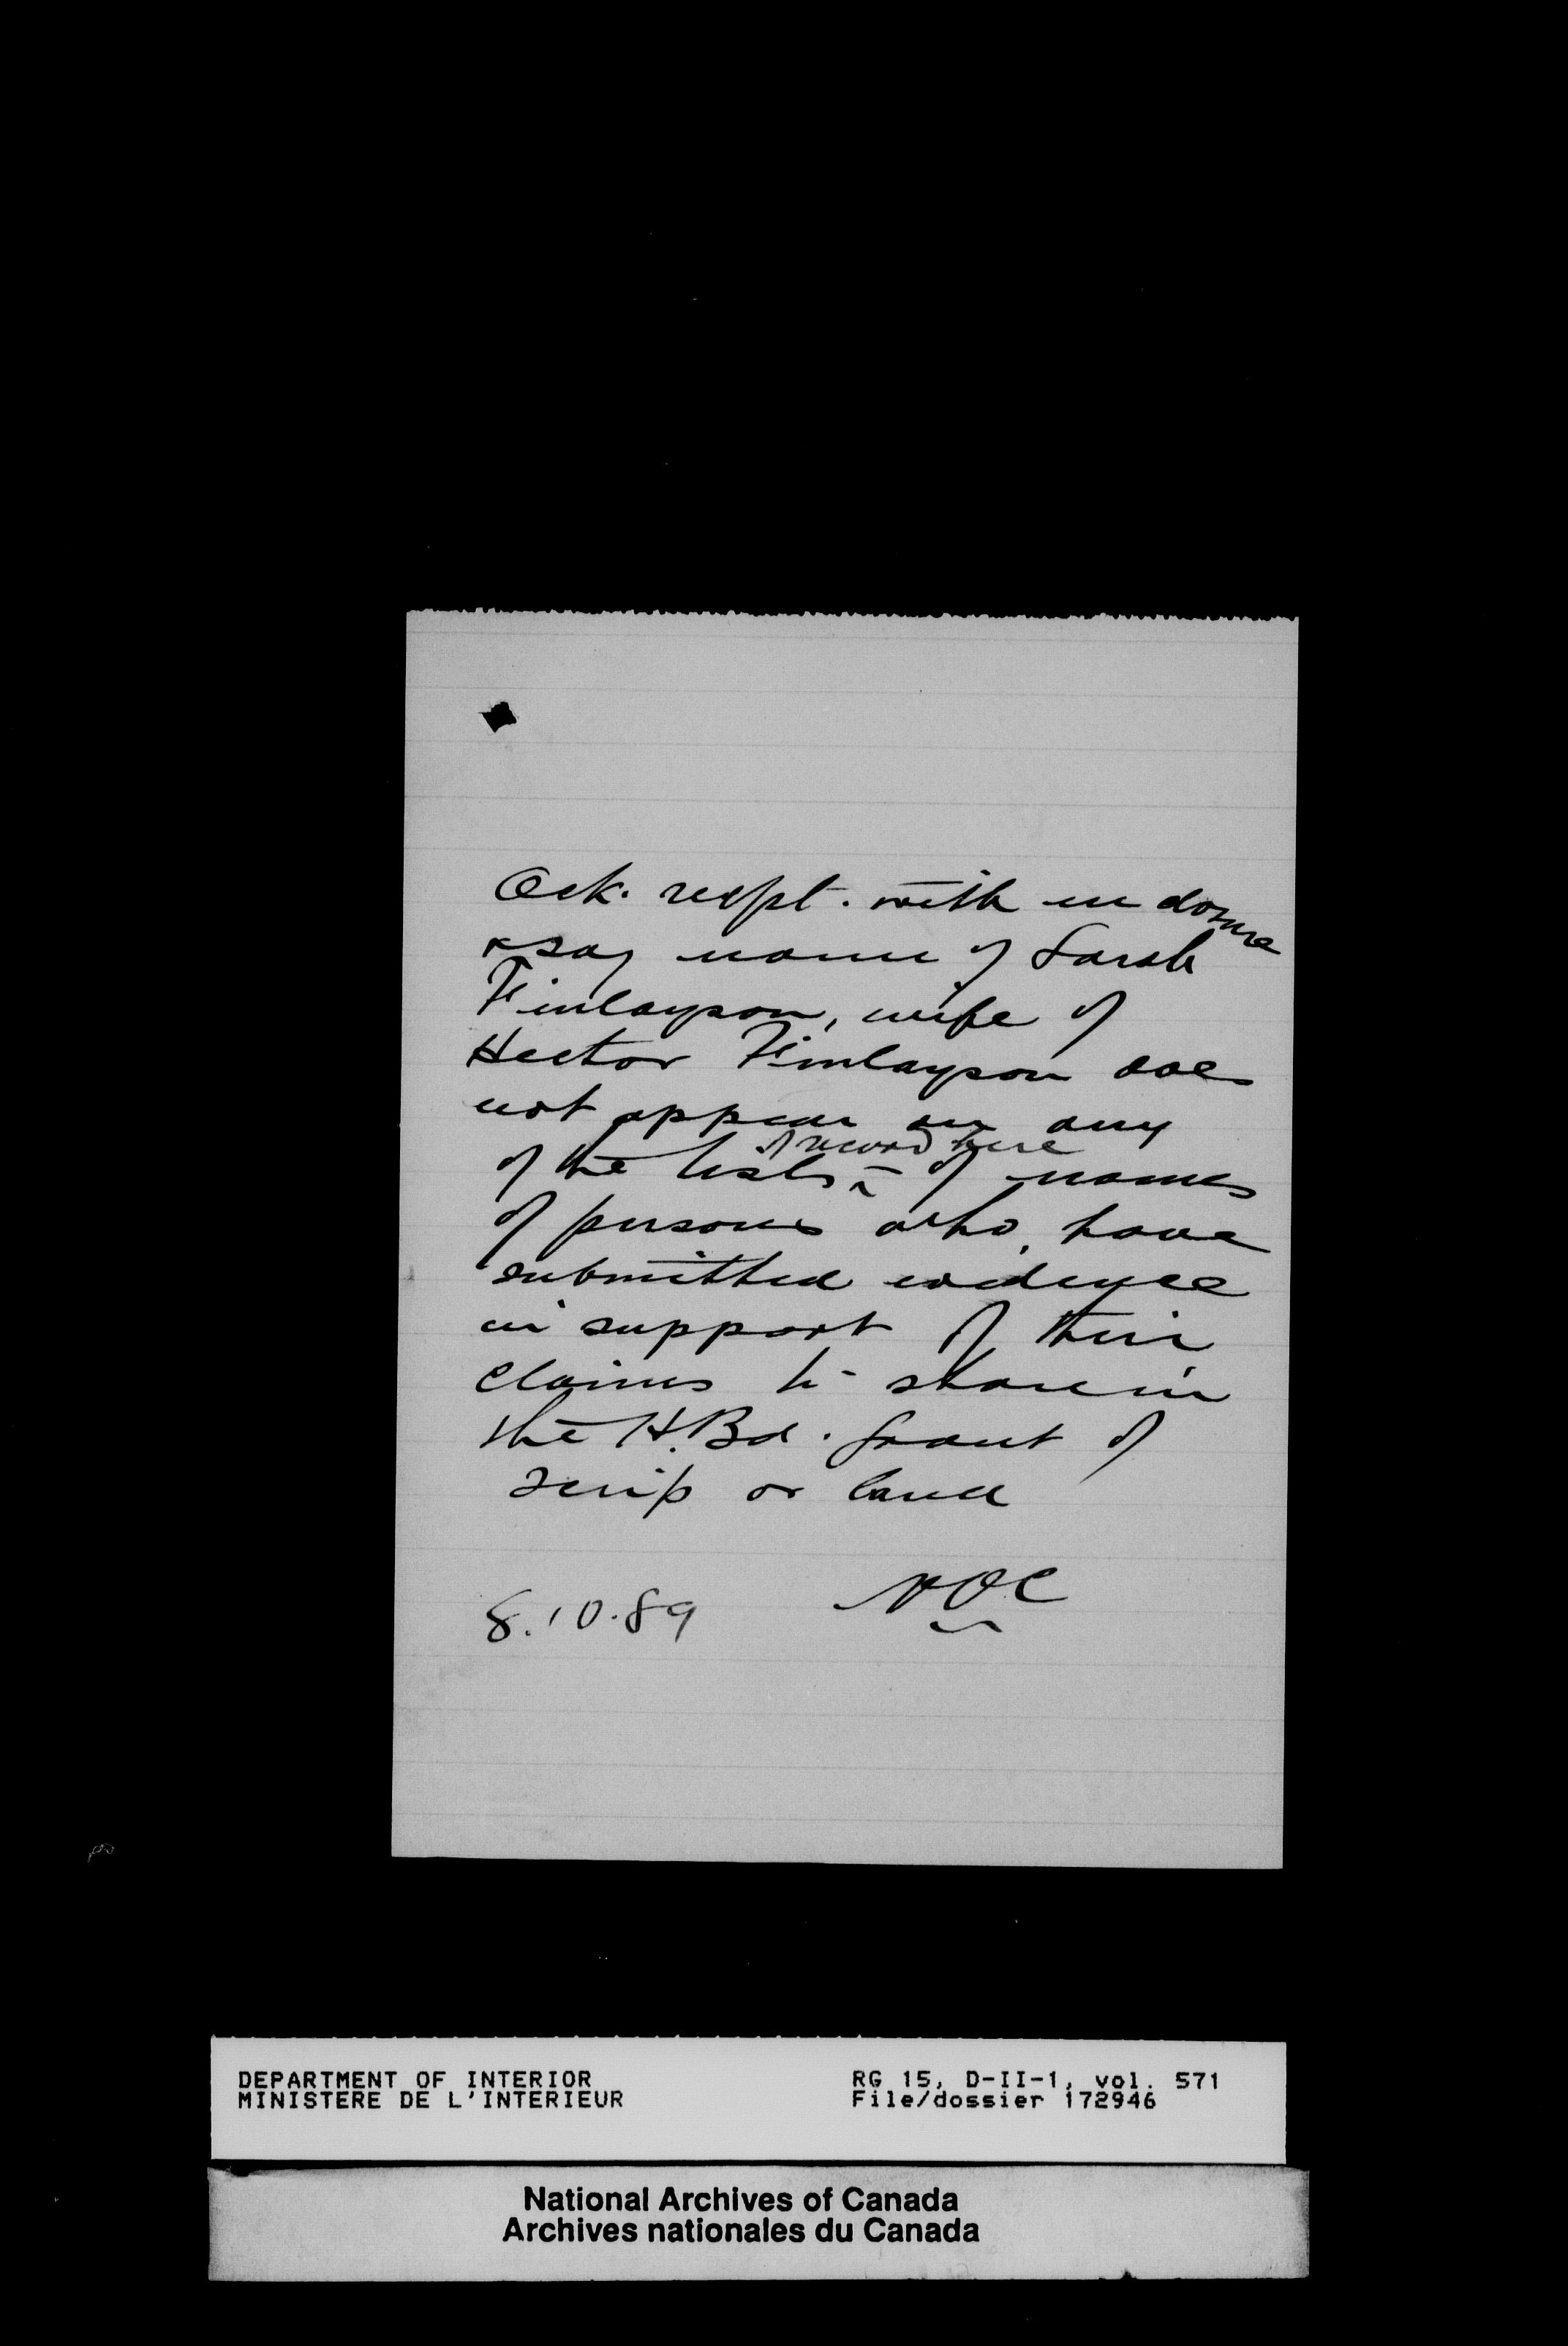 Ack. recpt. with enclosure
& say name of Sarah
Finlayson, wife of
Hector Finlayson does
not appear on any
of record here
of the lists ^ of names
of persons who, have
submitted evidence
in support of their
claims to share in
the H. Bd. Grant of
scrip or land
8.10.89 NOC
DEPARTMENT OF INTERIOR RG 15, D-II-1, vol. 571
MINISTERE DE L'INTERIEUR File/dossier 172946
National Archives of Canada
Archives nationales du Canada